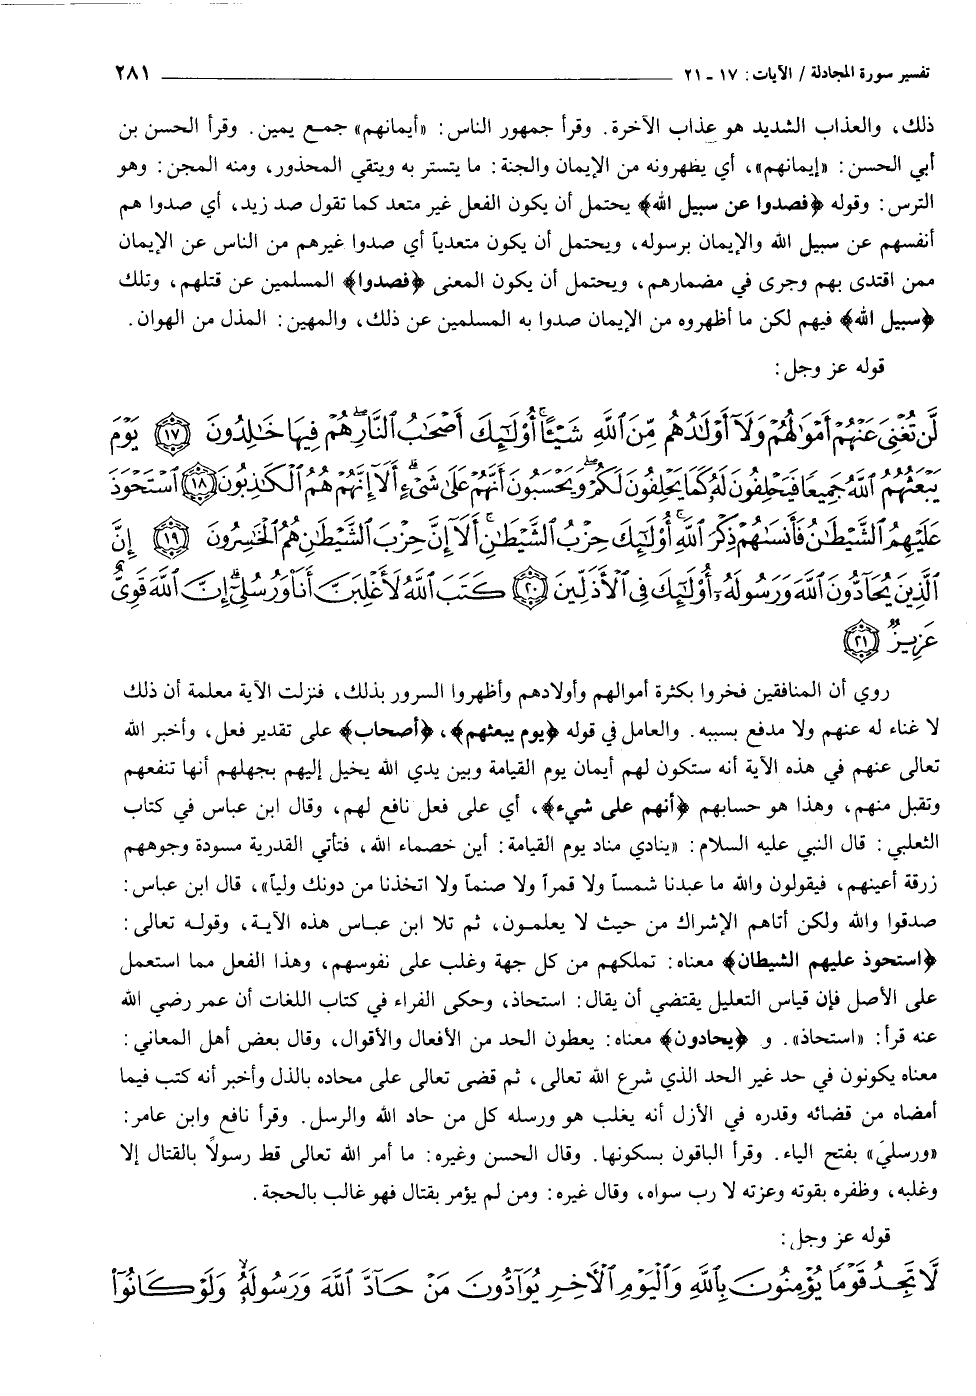 تفسير سورة المجادلة / الآيات: ١٧ - ٢١ ٢٨١
ذلك، والعذاب الشديد هو عذاب الآخرة. وقرأ جمهور الناس: «أيمانهم» جمع يمين. وقرأ الحسن بن
أبي الحسن: «إيمانهم»، أي يظهرونه من الإيمان والجنة: ما يتستر به ويتقي المحذور، ومنه المجن: وهو
الترس: وقوله ﴿فصدوا عن سبيل الله﴾ يحتمل أن يكون الفعل غير متعد كما تقول صد زيد، أي صدوا هم
أنفسهم عن سبيل الله والإيمان برسوله، ويحتمل أن يكون متعدياً أي صدوا غيرهم من الناس عن الإيمان
ممن اقتدى بهم وجرى في مضمارهم، ويحتمل أن يكون المعنى ﴿فصدوا﴾ المسلمين عن قتلهم، وتلك
﴿سبيل الله﴾ فيهم لكن ما أظهروه من الإيمان صدوا به المسلمين عن ذلك، والمهين: المذل من الهوان.
قوله عز وجل:
لَّن تُغْنِىَ عَنْهُمْ أَمْوَٰلُهُمْ وَلَآ أَوْلَٰدُهُم مِّنَ ٱللَّهِ شَيْـًٔا ۚ أُو۟لَٰٓئِكَ أَصْحَٰبُ ٱلنَّارِ ۖ هُمْ فِيهَا خَٰلِدُونَ ﴿١٧﴾ يَوْمَ
يَبْعَثُهُمُ ٱللَّهُ جَمِيعًا فَيَحْلِفُونَ لَهُۥ كَمَا يَحْلِفُونَ لَكُمْ ۖ وَيَحْسَبُونَ أَنَّهُمْ عَلَىٰ شَىْءٍ ۚ أَلَآ إِنَّهُمْ هُمُ ٱلْكَٰذِبُونَ ﴿١٨﴾ ٱسْتَحْوَذَ
عَلَيْهِمُ ٱلشَّيْطَٰنُ فَأَنسَىٰهُمْ ذِكْرَ ٱللَّهِ ۚ أُو۟لَٰٓئِكَ حِزْبُ ٱلشَّيْطَٰنِ ۚ أَلَآ إِنَّ حِزْبَ ٱلشَّيْطَٰنِ هُمُ ٱلْخَٰسِرُونَ ﴿١٩﴾ إِنَّ
ٱلَّذِينَ يُحَآدُّونَ ٱللَّهَ وَرَسُولَهُۥٓ أُو۟لَٰٓئِكَ فِى ٱلْأَذَلِّينَ ﴿٢٠﴾ كَتَبَ ٱللَّهُ لَأَغْلِبَنَّ أَنَا۠ وَرُسُلِىٓ ۚ إِنَّ ٱللَّهَ قَوِىٌّ
عَزِيزٌ ﴿٢١﴾
روي أن المنافقين فخروا بكثرة أموالهم وأولادهم وأظهروا السرور بذلك، فنزلت الآية معلمة أن ذلك
لا غناء له عنهم ولا مدفع بسببه. والعامل في قوله ﴿يوم يبعثهم﴾، ﴿أصحاب﴾ على تقدير فعل، وأخبر الله
تعالى عنهم في هذه الآية أنه ستكون لهم أيمان يوم القيامة وبين يدي الله يخيل إليهم بجهلهم أنها تنفعهم
وتقبل منهم، وهذا هو حسابهم ﴿أنهم على شيء﴾، أي على فعل نافع لهم، وقال ابن عباس في كتاب
الثعلبي: قال النبي عليه السلام: «ينادي مناد يوم القيامة: أين خصماء الله، فتأتي القدرية مسودة وجوههم
زرقة أعينهم، فيقولون والله ما عبدنا شمساً ولا قمراً ولا صنماً ولا اتخذنا من دونك ولياً»، قال ابن عباس:
صدقوا والله ولكن أتاهم الإشراك من حيث لا يعلمون، ثم تلا ابن عباس هذه الآية، وقوله تعالى:
﴿استحوذ عليهم الشيطان﴾ معناه: تملكهم من كل جهة وغلب على نفوسهم، وهذا الفعل مما استعمل
على الأصل فإن قياس التعليل يقتضي أن يقال: استحاذ، وحكى الفراء في كتاب اللغات أن عمر رضي الله
عنه قرأ: «استحاذ». و ﴿يحادون﴾ معناه: يعطون الحد من الأفعال والأقوال، وقال بعض أهل المعاني:
معناه يكونون في حد غير الحد الذي شرع الله تعالى، ثم قضى تعالى على محاده بالذل وأخبر أنه كتب فيما
أمضاه من قضائه وقدره في الأزل أنه يغلب هو ورسله كل من حاد الله والرسل. وقرأ نافع وابن عامر:
«ورسليَ» بفتح الياء. وقرأ الباقون بسكونها. وقال الحسن وغيره: ما أمر الله تعالى قط رسولاً بالقتال إلا
وغلبه، وظفره بقوته وعزته لا رب سواه، وقال غيره: ومن لم يؤمر بقتال فهو غالب بالحجة.
قوله عز وجل:
لَّا تَجِدُ قَوْمًا يُؤْمِنُونَ بِٱللَّهِ وَٱلْيَوْمِ ٱلْأَخِرِ يُوَآدُّونَ مَنْ حَآدَّ ٱللَّهَ وَرَسُولَهُۥ وَلَوْ كَانُوٓا۟